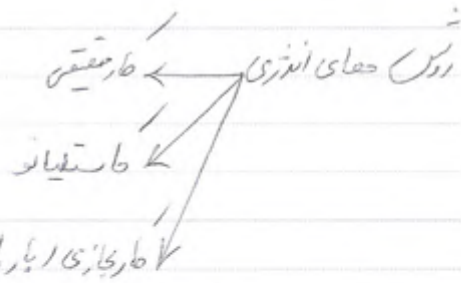 روش های انرژی
کار حقیقی
کاستلیانو
کار مجازی ( بار